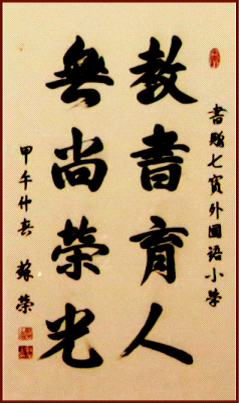 書贈七寶外國語小學
教書育人
無尚榮光
甲午仲春 蘇榮